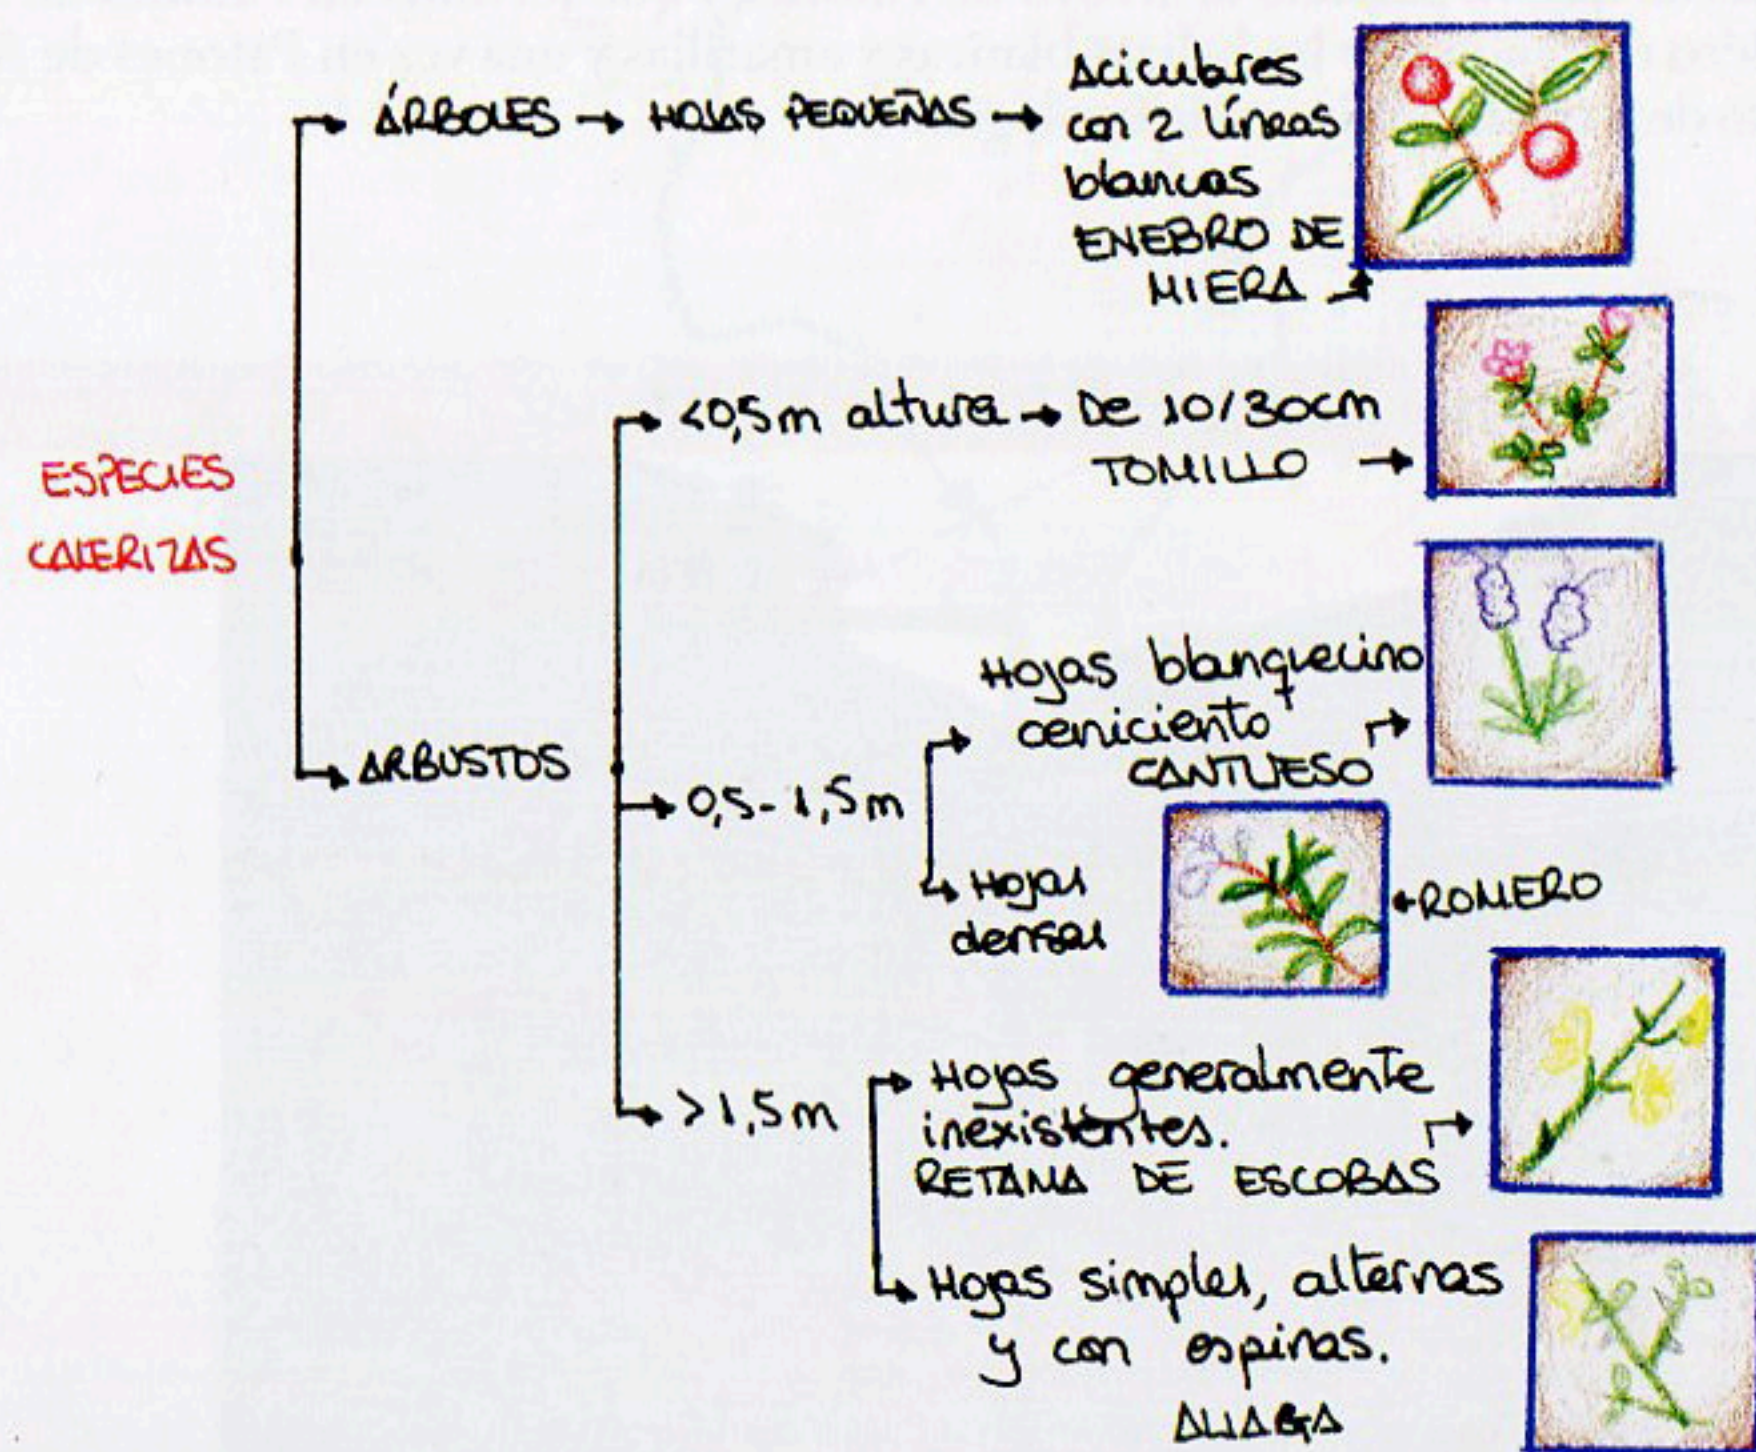 ESPECIES
CALERIZAS
ÁRBOLES → HOJAS PEQUEÑAS →
Aciculares
con 2 líneas
blancas
ENEBRO DE
MIERA
ARBUSTOS
<0,5m altura → De 10/30cm
TOMILLO →
0,5-1,5m
Hojas blanquecino
ceniciento
CANTUESO
Hojas
densas
ROMERO
>1,5m
Hojas generalmente
inexistentes.
RETAMA DE ESCOBAS
Hojas simples, alternas
y con espinas.
ALIAGA